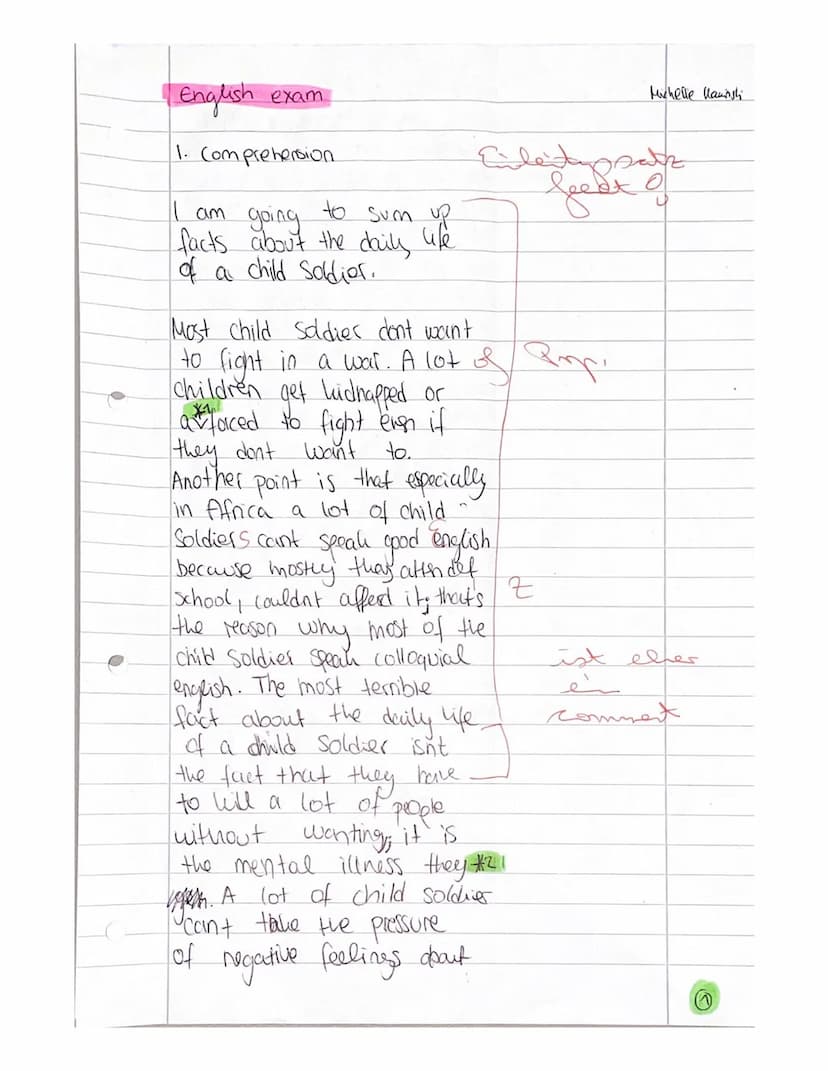 English exam
Michelle
1. Comprehension
Einleitungssatz
fehlt!
I am going to sum up
facts about the daily life
of a child soldier.
Most child soldier dont want
to fight in a war. A lot of
children get kidnapped or
*1 forced to fight even if
they dont want to.
Another point is that especially
in Africa a lot of child
soldiers cant speak good English
because mostly they
Z
school, couldnt afferd it, that's
the reason why most of the
child soldier speak colloquial
ist eher
english. The most terrible
ein
fact about the daily life
comment
of a child soldier isnt
the fact that they have
to kill a lot of people
without wanting, it is
the mental illness they *2
A lot of child soldier
cant take the pressure
of negative feelings about
1